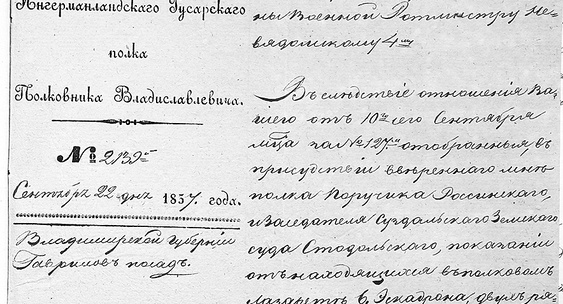 Ингерманландскаго Гусарскаго
полка
Полковника Владиславлевича.
№ 2139
Сентябрь 22 дня 1837. года.
Владимирской губерніи
Гавриловъ посадъ.
ны Военной Ротмистру Не-
вядомскому 4му
Въ слѣдствіе отношенія Ва-
шего отъ 10го сего Сентября
мца за № 127м отобранныя, въ
присудствіи ввѣреннаго мнѣ
полка Порусика Россинскаго,
и Заседателя Суздальскаго Земскаго
суда Стодольскаго, показаніи
отъ находящихся въ полковомъ
Лазаретѣ 6. Эскадрона, двумъ ря-